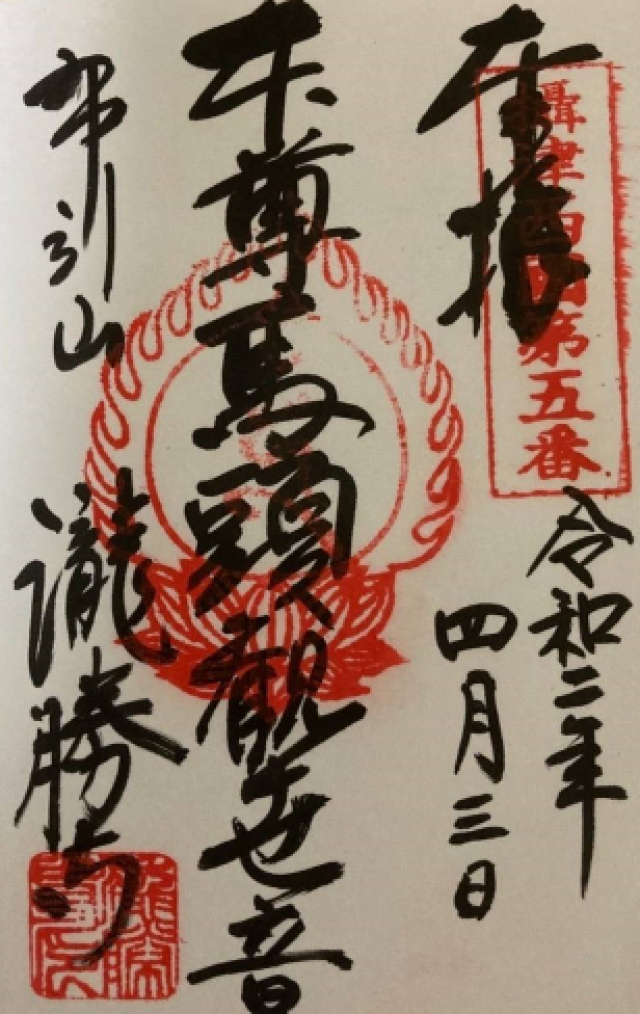 奉拝
攝津西国第五番
令和二年
四月三日
本尊馬頭観世音
布引山
瀧勝寺